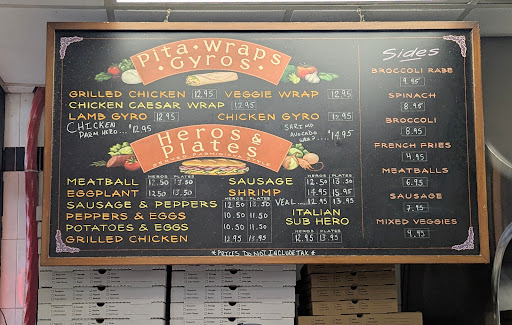 Pita • Wraps
• Gyros •
GRILLED CHICKEN 12.95 VEGGIE WRAP 12.95
CHICKEN CAESAR WRAP 12.95
LAMB GYRO 12.95 CHICKEN GYRO 12.95
CHICKEN
PARM HERO... $12.95
AVOCADO
WRAP... $14.95
Heros &
Plates
HEROS PLATES
MEATBALL 12.50 13.50
EGGPLANT 12.50 13.50
SAUSAGE & PEPPERS 12.50 13.50
HEROS PLATES
PEPPERS & EGGS 10.50 11.50
POTATOES & EGGS 10.50 11.50
GRILLED CHICKEN 12.95 13.95
HEROS PLATES
SAUSAGE 12.50 13.50
SHRIMP 14.95 15.95
VEAL 12.95 13.95
ITALIAN
SUB HERO
HEROS PLATES
12.95 13.95
Sides
BROCCOLI RABE
9.95
SPINACH
8.95
BROCCOLI
8.95
FRENCH FRIES
4.95
MEATBALLS
6.95
SAUSAGE
7.95
MIXED VEGGIES
9.95
* PRICES DO NOT INCLUDE TAX *